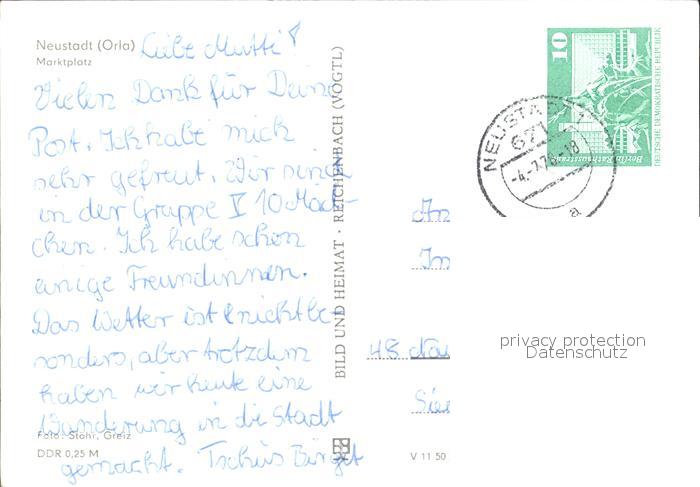 Neustadt (Orla)
Marktplatz
Liebe Mutti!
Vielen Dank für Deine
Post. Ich habe mich
sehr gefreut. Wir sind
in der Gruppe V 10 Mäd-
chen. Ich habe schon
einige Freundinnen.
Das Wetter ist nicht be-
sonders, aber trotzdem
haben wir heute eine
Wanderung in die Stadt
gemacht. Tschüs Birgit
Foto: Stöhr, Greiz
DDR 0,25 M
BILD UND HEIMAT · REICHENBACH (VOGTL)
V 11 50
10
DEUTSCHE DEMOKRATISCHE REPUBLIK
NEUSTADT
671
a
An
48
privacy protection
Datenschutz